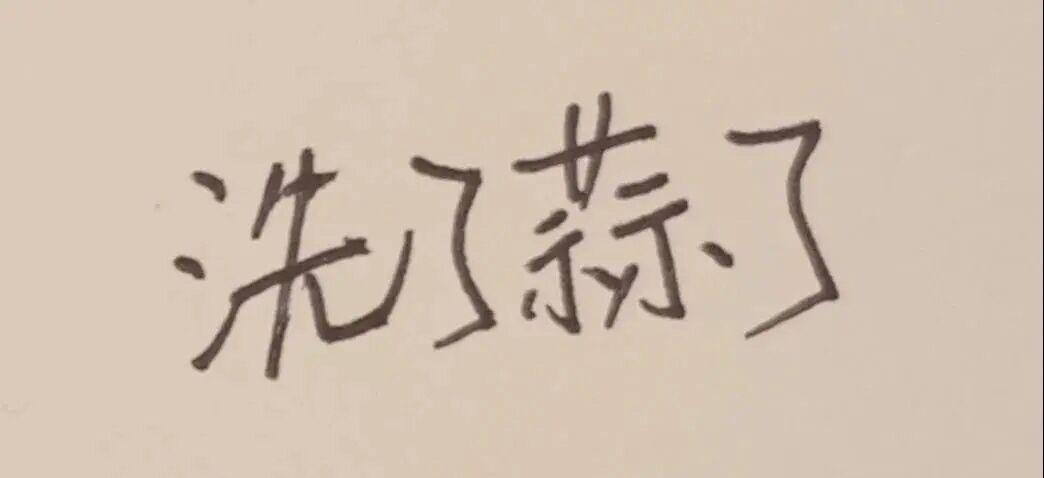 洗了蒜了